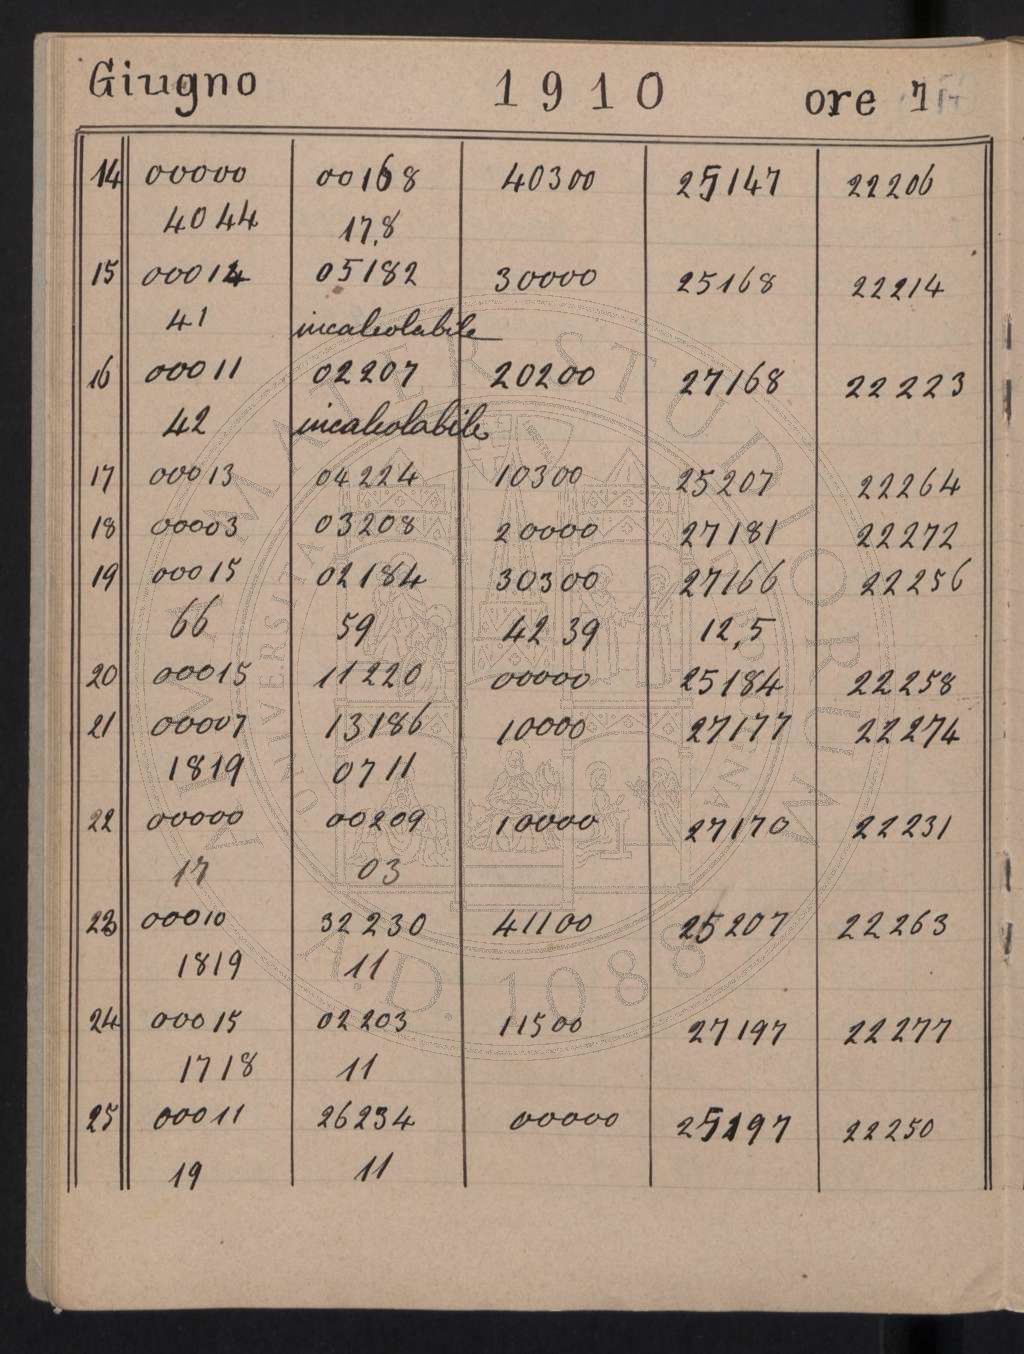 Giugno 1910 ore 7
14 00000 00168 40300 25147 22206
4044 17,8
15 00014 05182 30000 25168 22214
41 incalcolabile
16 00011 02207 20200 27168 22223
42 incalcolabile
17 00013 04224 10300 25207 22264
18 00003 03208 20000 27181 22272
19 00015 02184 30300 27166 22256
66 59 4239 12,5
20 00015 11220 00000 25184 22258
21 00007 13186 10000 27177 22274
1819 0711
22 00000 00209 10000 27170 22231
17 03
23 00010 32230 41100 25207 22263
1819 11
24 00015 02203 11500 27197 22277
1718 11
25 00011 26234 00000 25197 22250
19 11
ALMA MATER STUDIORUM
A.D. 1088